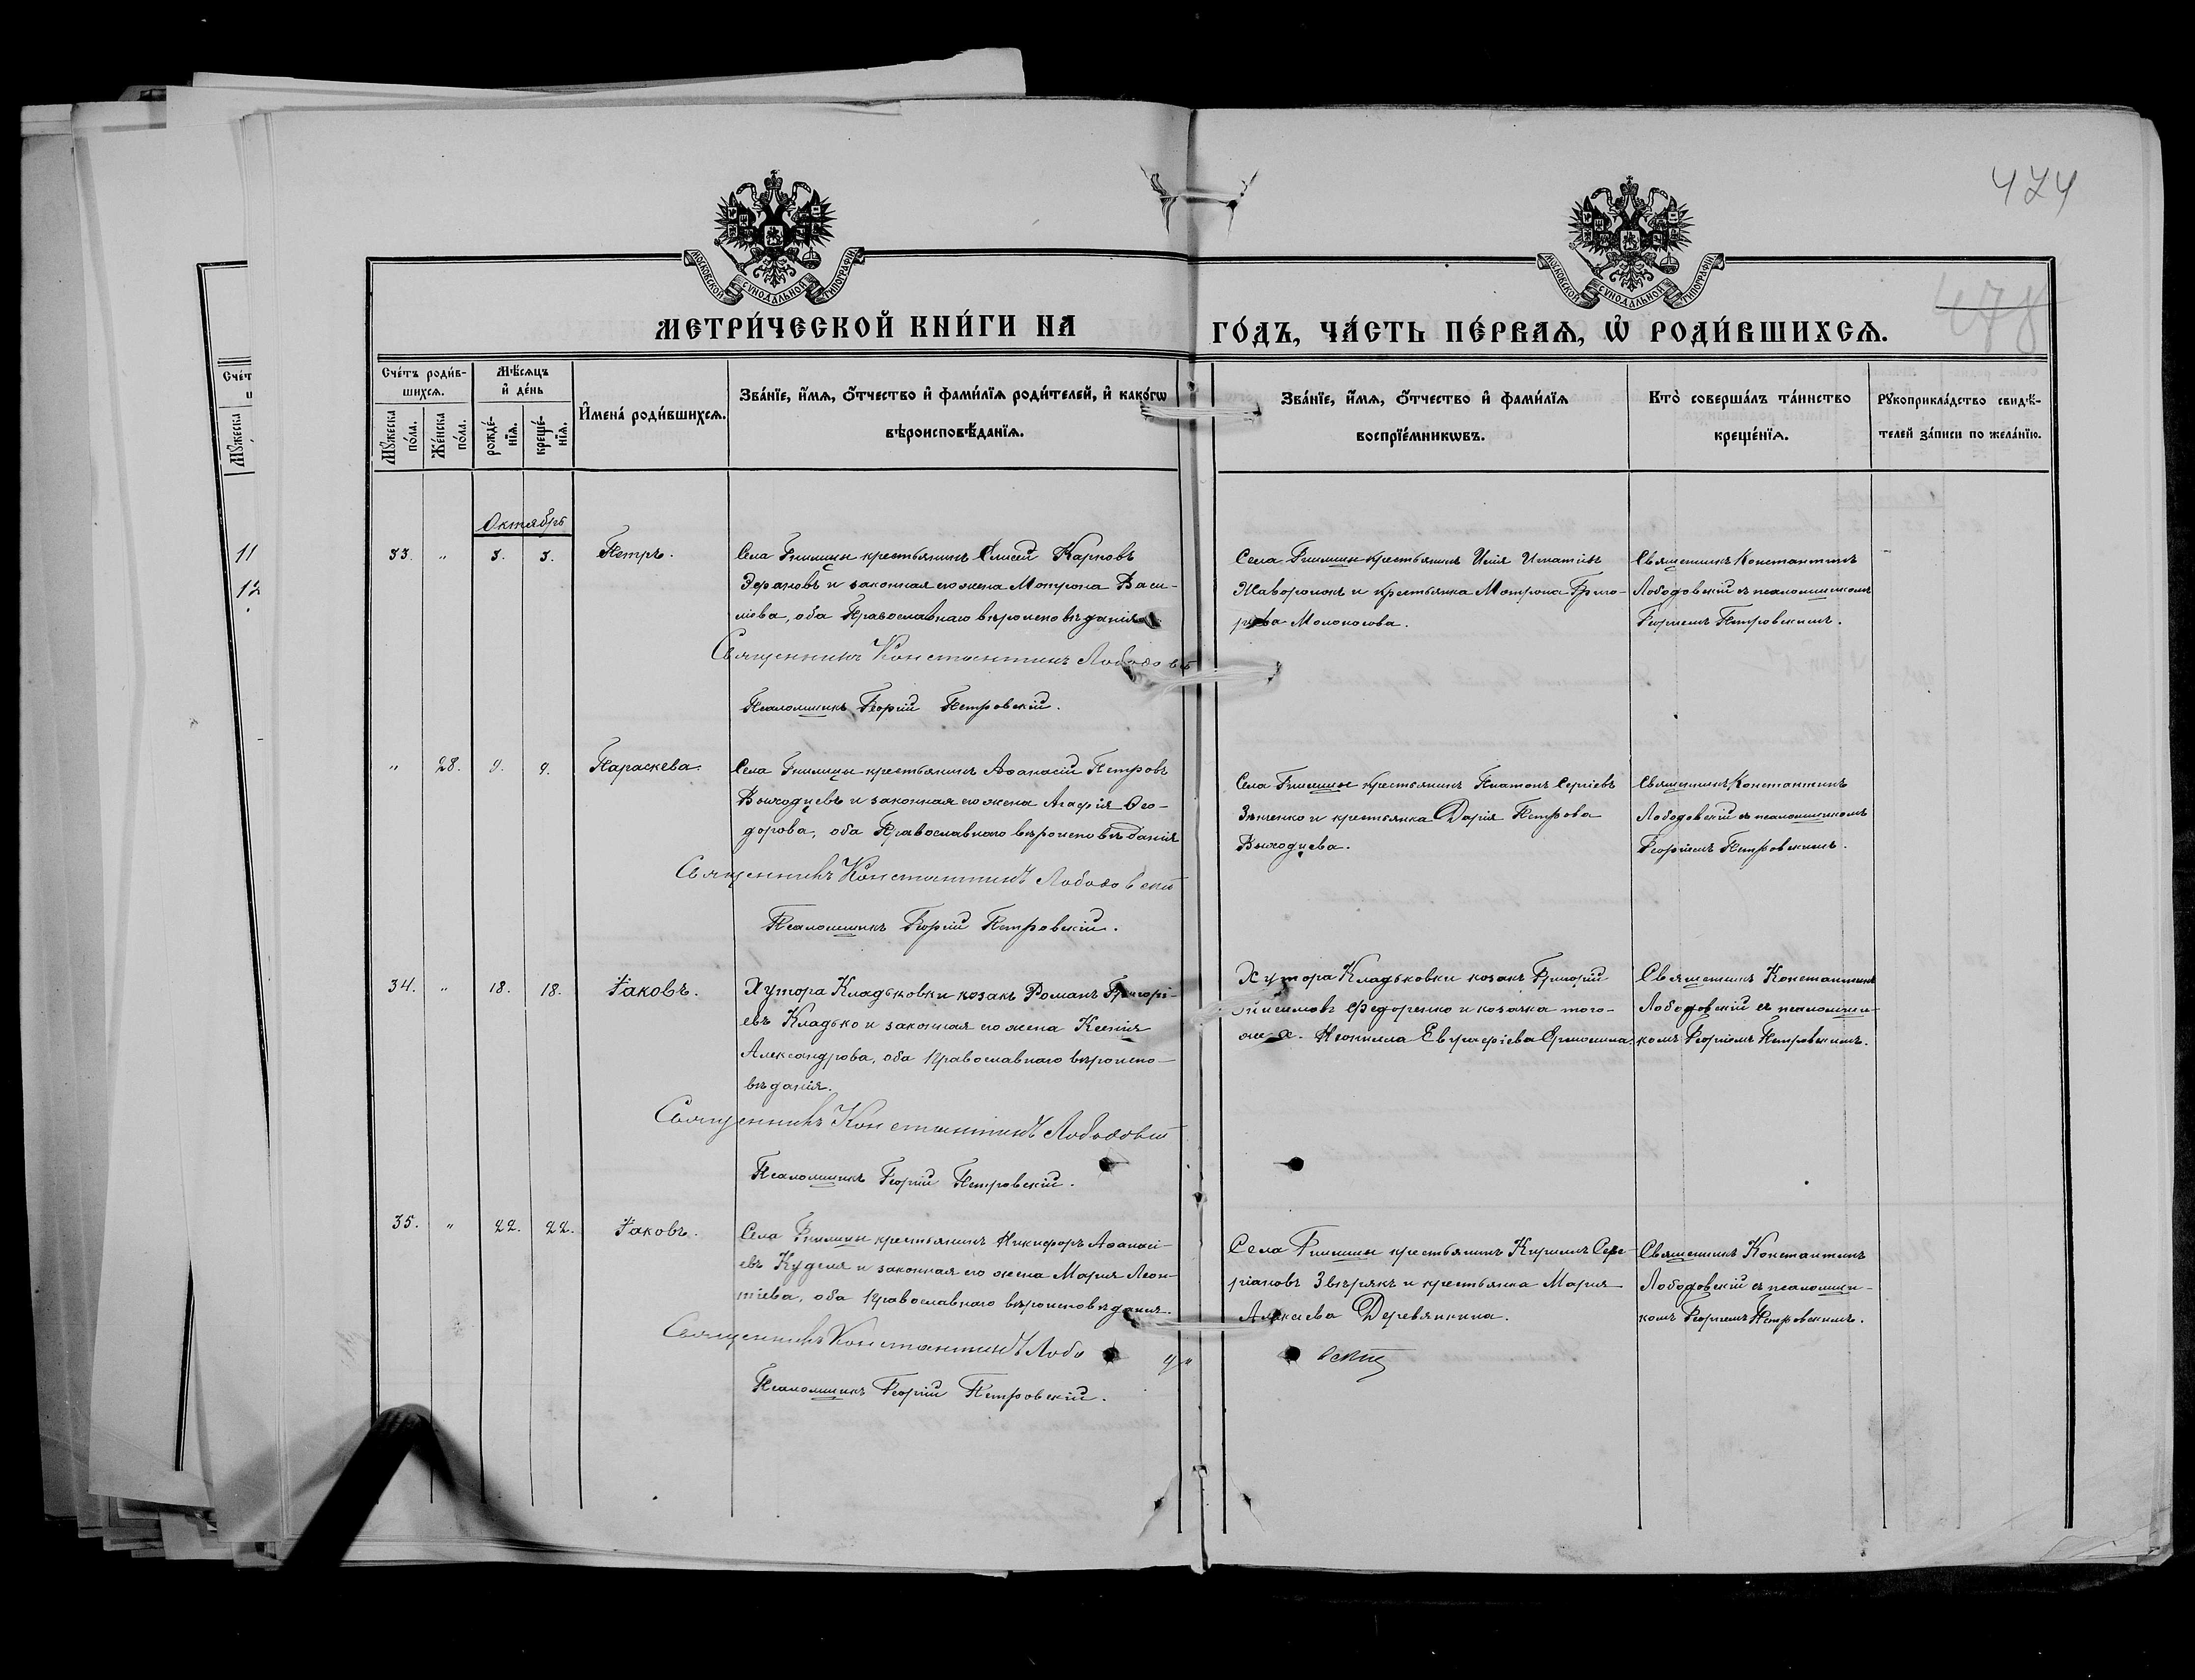 474
478
МОСКОВСКОЙ СѴНОДАЛЬНОЙ ТИПОГРАФІИ
МОСКОВСКОЙ СѴНОДАЛЬНОЙ ТИПОГРАФІИ
МЕТРИ́ЧЕСКОЙ КНИ́ГИ НА ГО́ДЪ, ЧА́СТЬ ПЕ́РВАѦ, Ѡ҆ РОДИ́ВШИХСѦ.
Сче́тъ роди́в-
шихсѧ.
Мꙋ́жеска по́ла.
Же́нска по́ла.
Мѣ́сѧцъ и҆ де́нь
рожде́-
нїѧ.
креще́-
нїѧ.
И҆мена̀ роди́вшихсѧ.
Зва́нїе, и҆́мѧ, о҆́тчество и҆ фами́лїѧ роди́телей, и҆ како́гѡ
вѣроисповѣ́данїѧ.
Зва́нїе, и҆́мѧ, о҆́тчество и҆ фами́лїѧ
воспрїе́мникѡвъ.
Кто̀ соверша́лъ та́инство
креще́нїѧ.
Рꙋкоприкла́дство свидѣ́-
телей за́писи по жела́нїю.
11
12
Октябрь
33. " 3. 3. Петръ.
Села Гнилицы крестьянинъ Елисей Карповъ
и законная его жена Мотрона Васи-
лiева, оба Православнаго вѣроисповѣданія.
Священникъ Константинъ Лободовс
Псаломщикъ Георгій Петровскій.
Села Гнилицы крестьянинъ Илія Игнатіевъ
Жаворонокъ и крестьянка Мотрона Григо-
ріева Молоносова.
Священникъ Константинъ
Лободовскій съ псаломщикомъ
Георгіемъ Петровскимъ.
" 28. 9. 9. Параскева.
Села Гнилицы крестьянинъ Аѳанасій Петровъ
Выходцевъ и законная его жена Агафія Ѳео-
дорова, оба Православнаго вѣроисповѣданія
Священникъ Константинъ Лободовскій
Псаломщикъ Георгій Петровскій.
Села Гнилицы крестьянинъ Платонъ Сергіевъ
и крестьянка Дарія Петрова
Выходцева.
Священникъ Константинъ
Лободовскій съ псаломщикомъ
Георгіемъ Петровскимъ.
34. " 18. 18. Іаковъ.
Хутора Кладьковки козакъ Романъ Григорі-
евъ Кладько и законная его жена Ксенія
Александрова, оба Православнаго вѣроиспо-
вѣданія.
Священникъ Константинъ Лободовскій
Псаломщикъ Георгій Петровскій.
Хутора Кладьковки козакъ Григорій
Федоренко и козачка того-
же х. Неонилла Евфиміева
Священникъ Константинъ
Лободовскій съ псаломщи-
комъ Георгіемъ Петровскимъ.
35. " 22. 22. Іаковъ.
Села Гнилицы крестьянинъ Никифоръ Аѳанасі-
евъ Куделя и законная его жена Марія Леон-
тіева, оба Православнаго вѣроисповѣданія.
Священникъ Константинъ Лобо
овскій
Псаломщикъ Георгій Петровскій.
Села Гнилицы крестьянинъ Кириллъ
Звѣрякъ и крестьянка Марія
Алексѣева Деревянкина.
Священникъ Константинъ
Лободовскій съ псаломщи-
комъ Георгіемъ Петровскимъ.